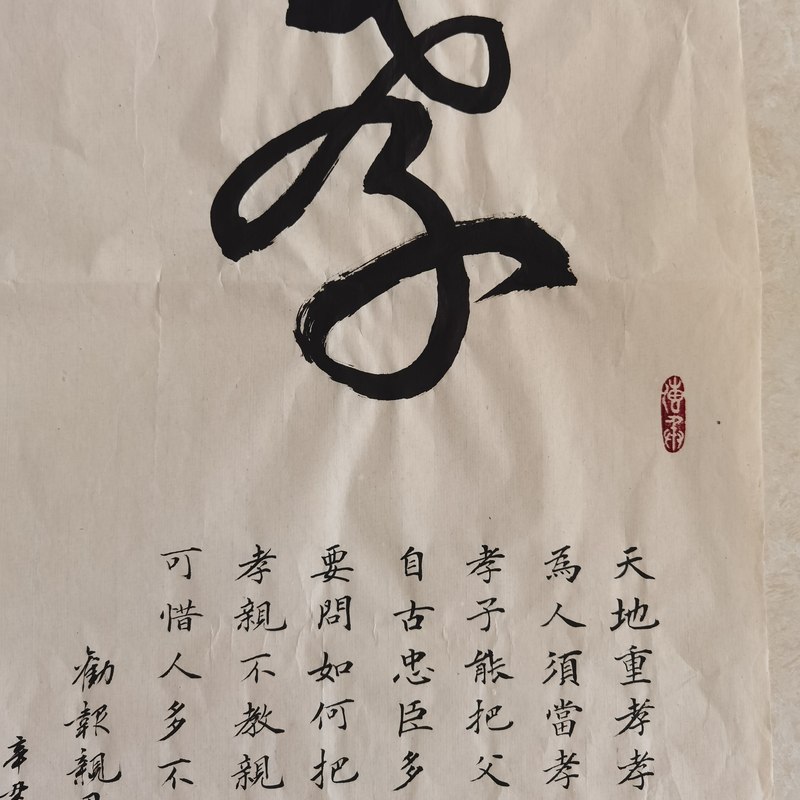 孝
天地重孝孝
為人須當孝
孝子能把父
自古忠臣多
要問如何把
孝親不教親
可惜人多不
勸報親
辛